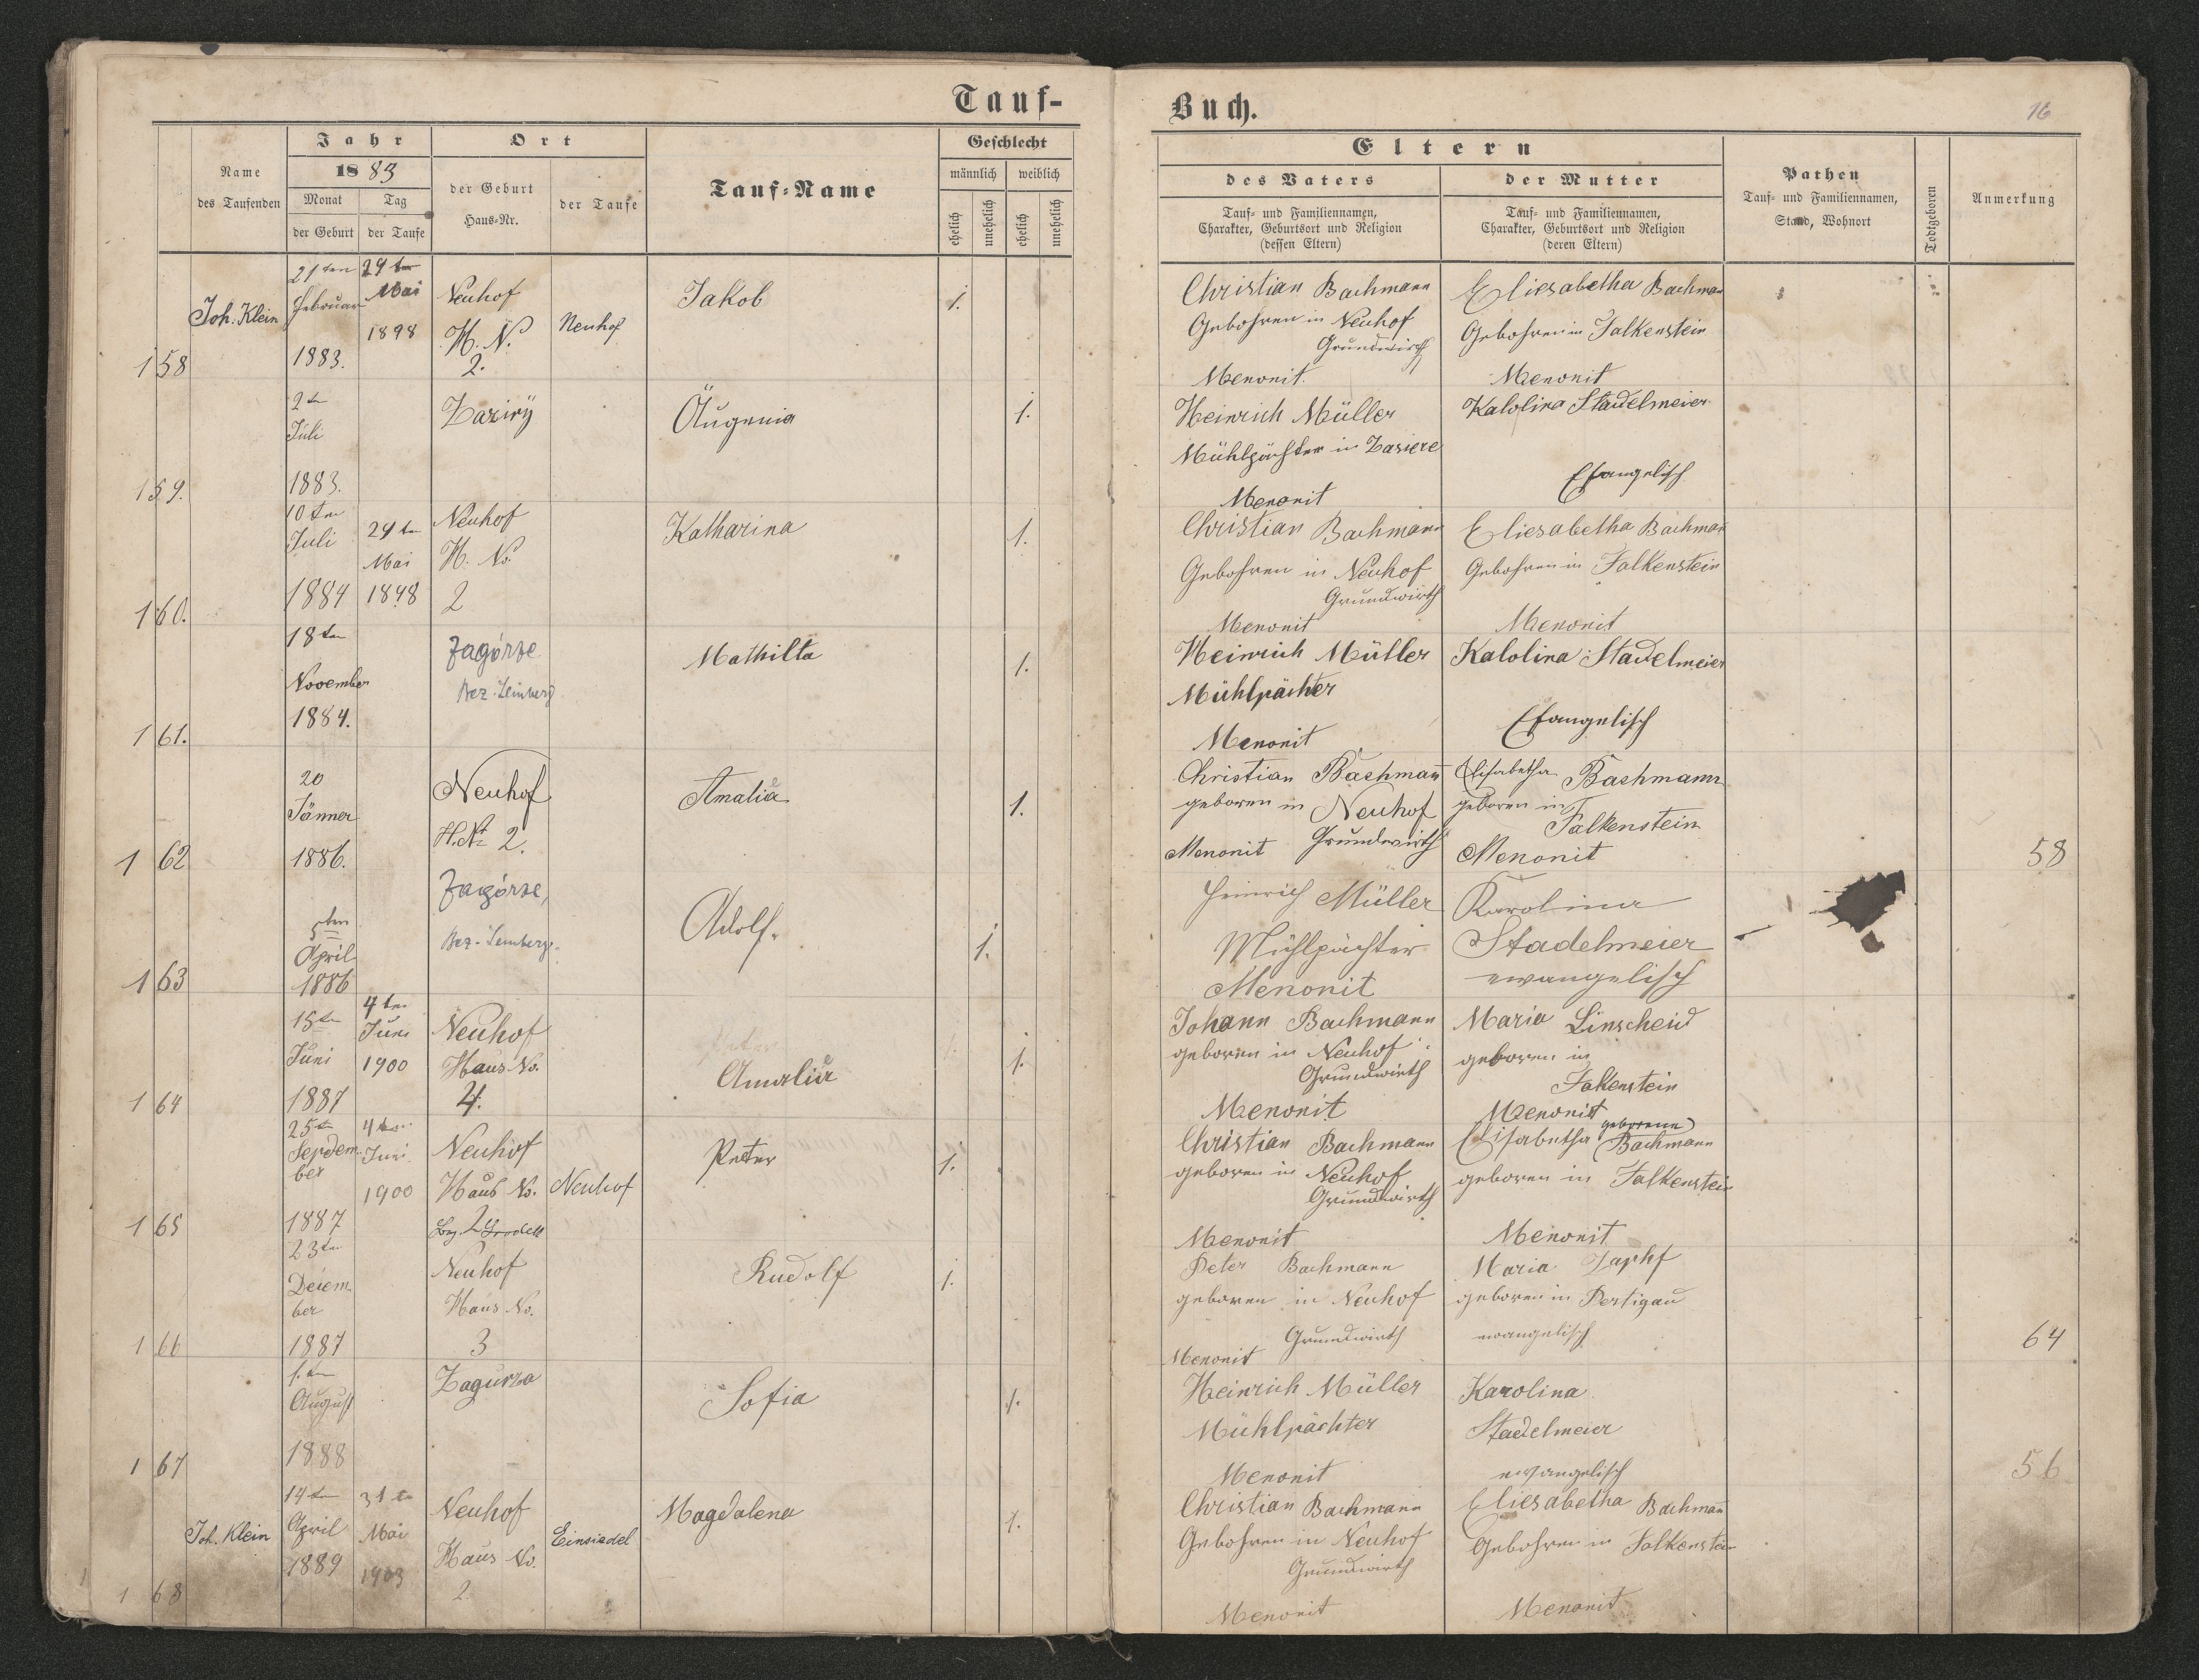 Tauf-
Buch.
16
Name
des Taufenden
Jahr
1883
Monat
Tag
der Geburt
der Taufe
Ort
der Geburt
Haus-Nr.
der Taufe
Tauf-Name
Geschlecht
männlich
weiblich
ehelich
unehelich
ehelich
unehelich
Eltern
des Vaters
Tauf- und Familiennamen,
Charakter, Geburtsort und Religion
(dessen Eltern)
der Mutter
Tauf- und Familiennamen,
Charakter, Geburtsort und Religion
(deren Eltern)
Pathen
Tauf- und Familiennamen,
Stand, Wohnort
Todtgeboren
Anmerkung
158
Joh. Klein
21ten
Februar
1883.
29ten
Mai
1898
Neuhof
H. N.
2.
Neuhof
Jakob
1.
Christian Bachmann
Gebohren in Neuhof
Grundwirth
Menonit.
Eliesabetha Bachman
Gebohren in Falkenstein
Menonit
159.
2ten
Juli
1883.
Zaziry
Äugenia
1.
Heinrich Müller
Mühlpächter in Zasiere
Menonit
Kalolina Stadelmeier
Efangelisch
160.
10ten
Juli
1884
29ten
Mai
1898
Neuhof
H. No.
2
Katharina
1.
Christian Bachmann
Gebohren in Neuhof
Grundwirth
Menonit
Eliesabetha Bachman
Gebohren in Falkenstein
Menonit
161.
18ten
November
1884.
Zagórze
Bez. Lemberg.
Mathilta
1.
Heinrich Müller
Mühlpächter
Menonit
Kalolina Stadelmeier
Efangelisch
162
20
Jänner
1886.
Neuhof
H.No 2.
Amalia
1.
Christian Bachman̄
geboren in Neuhof
Menonit Grundwirth
Elisabetha Bachmann
geboren in
Falkenstein
Menonit
58
163
5ten
April
1886
Zagórze,
Bez. Lemberg.
Adolf.
1.
Heinrich Müller
Mühlpächter
Menonit
Karolina
Stadelmeier
ewangelisch
164
15ten
Juni
1887
4ten
Juni
1900
Neuhof
Haus No.
4.
Peter
Amalia
1.
Johann Bachmann
geboren in Neuhof
Grundwirth
Menonit
Maria Linscheid
geboren in
Falkenstein
Menonit
165
25ten
Sepdem
ber
1887
4ten
Juni
1900
Neuhof
Haus No.
2
Neuhof
Peter
1.
Christian Bachmann
geboren in Neuhof
Grundwirth
Menonit
geborene
Elisabetha Bachmann
geboren in Falkenstein
Menonit
166
23ten
Deiem
ber
1887
Neuhof
Haus No.
3
Rudolf
1.
Peter Bachmann
geboren in Neuhof
Grundwirth
Menonit
Maria Zaphf
geboren in Pertigau
ewangelisch
64
167
1.ten
August
1888
Zagurza
Sofia
1.
Heinrich Müller
Mühlpächter
Menonit
Karolina
Stadelmeier
ewangelisch
56
168
Joh. Klein
14ten
April
1889
31te
Mai
1903
Neuhof
Haus No.
2.
Einsiedel
Magdalena
1.
Christian Bachmann
Gebohren in Neuhof
Grundwirth
Menonit
Eliesabetha Bachman̄
Gebohren in Falkenstein
Menonit